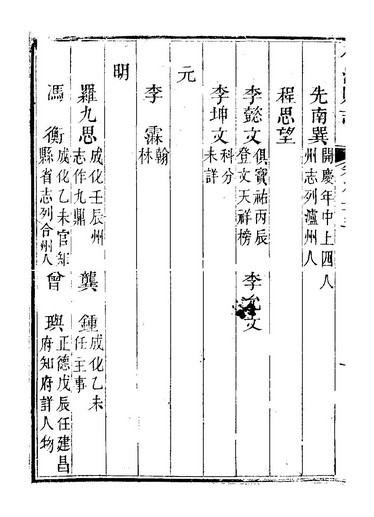 先南巽 開慶年中上四人州志列瀘州人
程思望
李懿文 俱寶祐丙辰登文天祥榜 李 文
李坤文 科分未詳
元
李霖 翰林
明
羅九思 成化壬辰州志作九鼎 龔鍾 成化乙未任主事
馮衡 成化乙未官知縣省志列合州人 曾璵 正德戊辰任建昌府知府詳人物